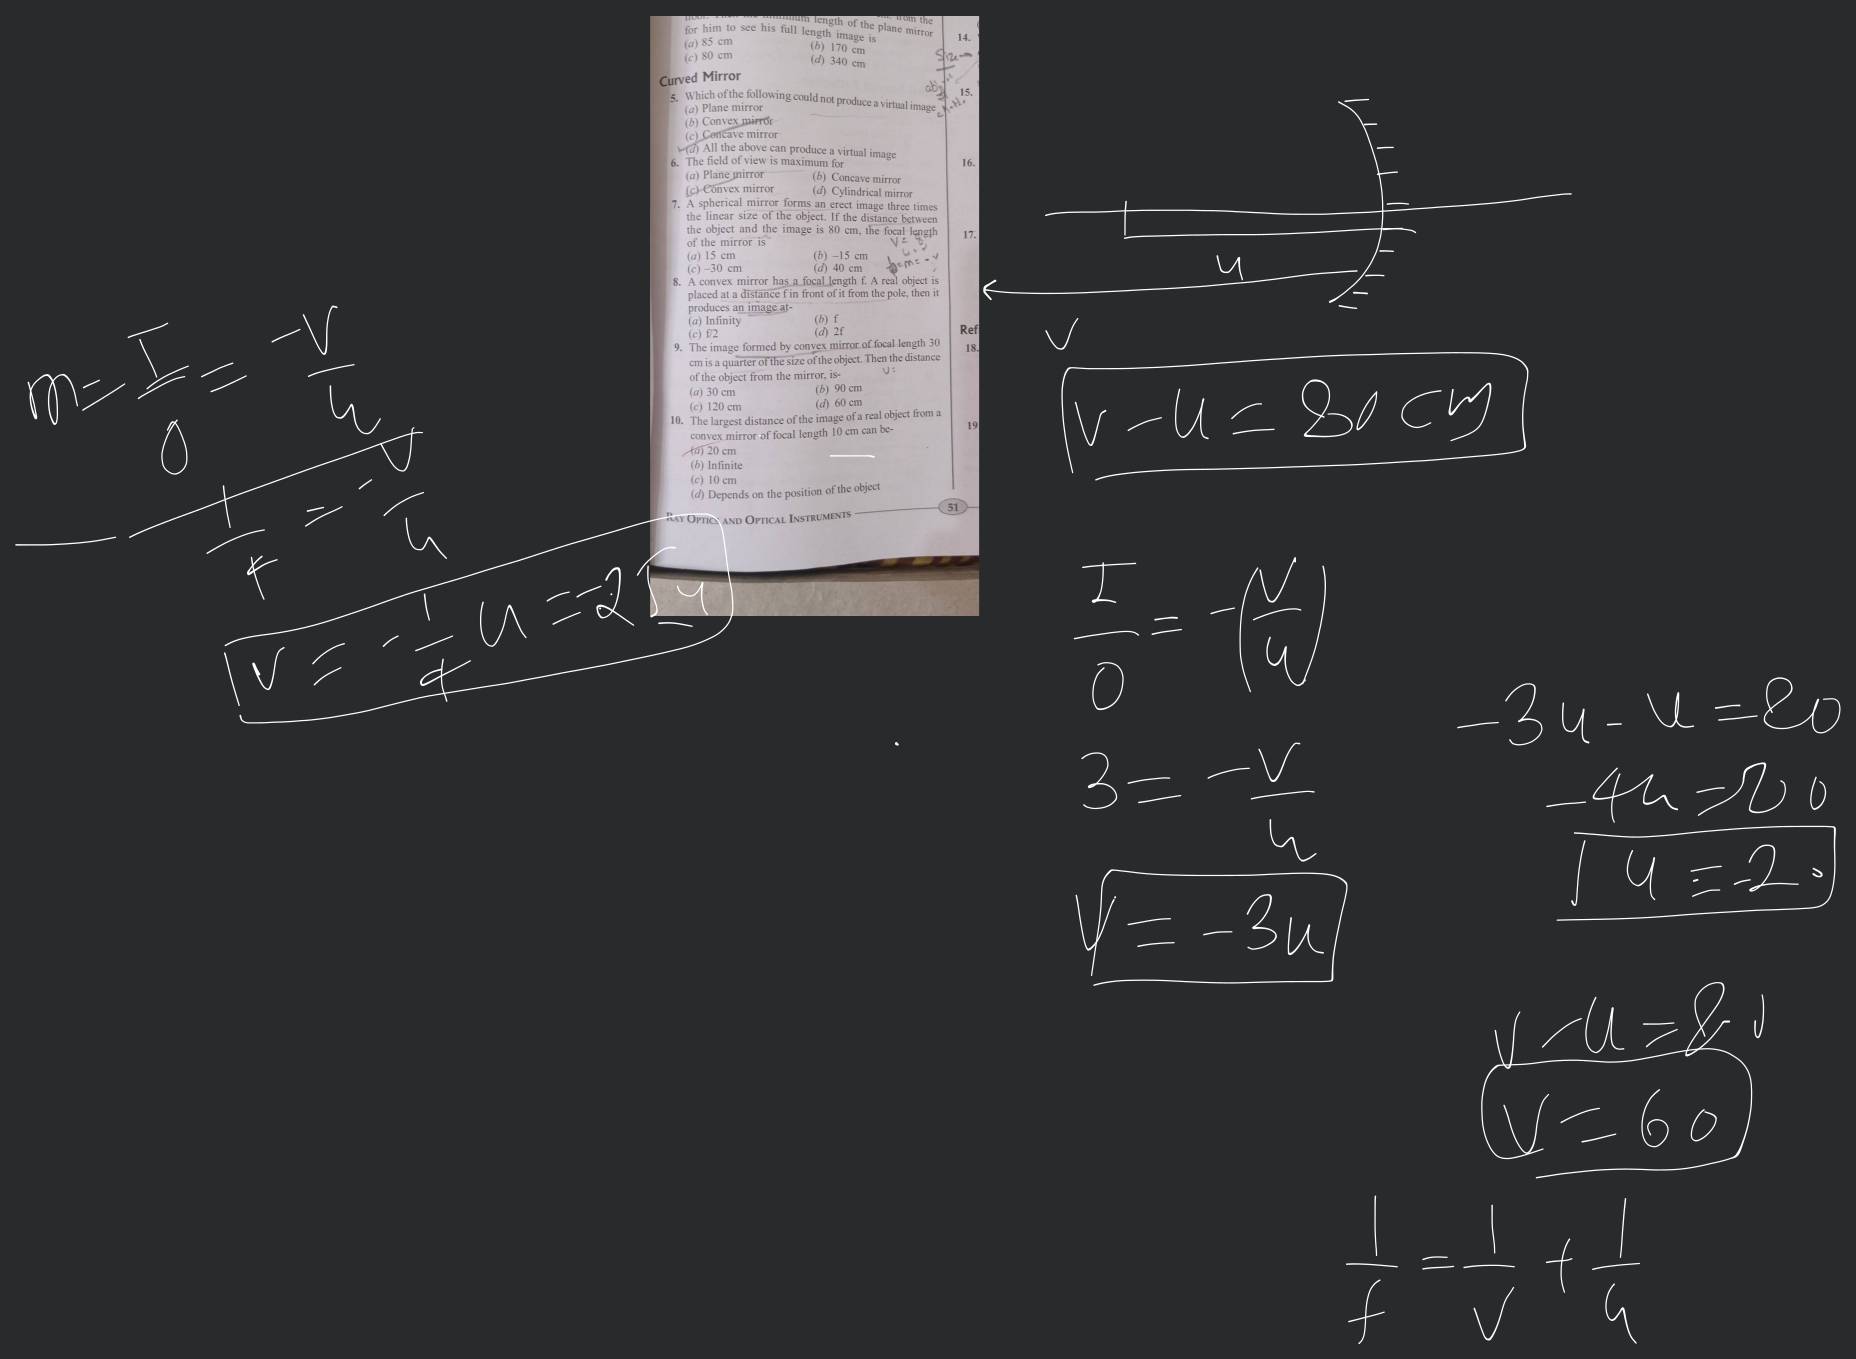 for him to see his full length image is
(a) 85 cm (b) 170 cm
(c) 80 cm (d) 340 cm
Curved Mirror
5. Which of the following could not produce a virtual image
(a) Plane mirror
(b) Convex mirror
(c) Concave mirror
(d) All the above can produce a virtual image
6. The field of view is maximum for
(a) Plane mirror (b) Concave mirror
(c) Convex mirror (d) Cylindrical mirror
7. A spherical mirror forms an erect image three times
the linear size of the object. If the distance between
the object and the image is 80 cm, the focal length
of the mirror is
(a) 15 cm (b) –15 cm
(c) –30 cm (d) 40 cm
8. A convex mirror has a focal length f. A real object is
placed at a distance f in front of it from the pole, then it
produces an image at-
(a) Infinity (b) f
(c) f/2 (d) 2f
9. The image formed by convex mirror of focal length 30
cm is a quarter of the size of the object. Then the distance
of the object from the mirror, is-
(a) 30 cm (b) 90 cm
(c) 120 cm (d) 60 cm
10. The largest distance of the image of a real object from a
convex mirror of focal length 10 cm can be-
(a) 20 cm
(b) Infinite
(c) 10 cm
(d) Depends on the position of the object
RAY OPTICS AND OPTICAL INSTRUMENTS 51
14.
15.
16.
17.
Ref
18.
19
m = I/O = -v/u
1/4 = -v/u
u
v
v - u = 80 cm
I/O = -(v/u)
3 = -v/u
v = -3u
-3u - u = 80
-4u = 80
u = -20
v - u = 80
v = 60
1/f = 1/v + 1/u